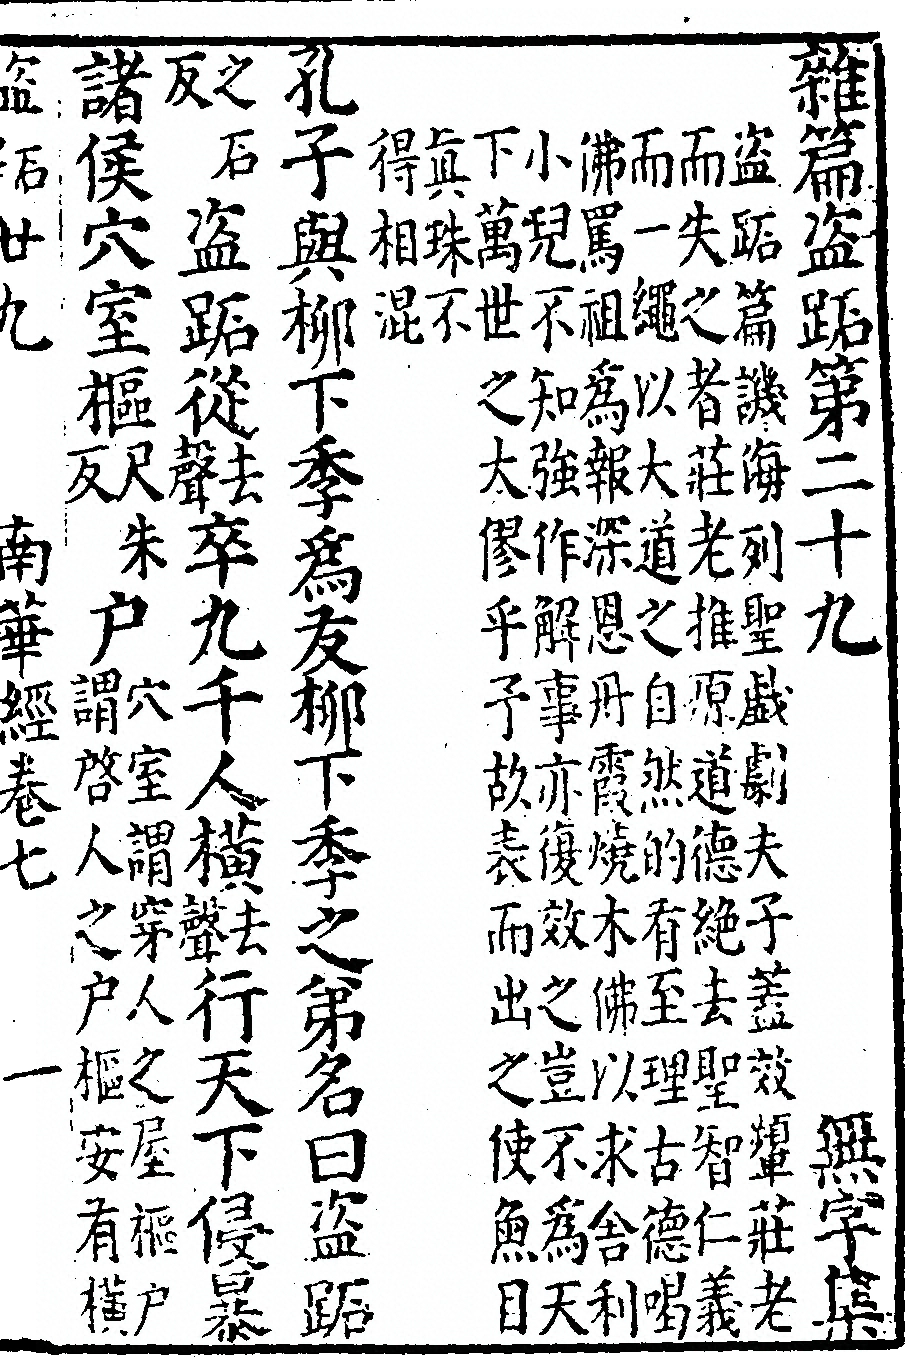 雜篇盗跖第二十九　無字集
盗跖篇譏侮列聖戲劇夫子蓋效顰莊老
而失之者莊老推原道德絶去聖智仁義
而一繩以大道之自然的有至理古德喝
佛罵祖爲報深恩丹霞燒木佛以求舍利
小兒不知強作解事亦復效之豈不爲天
下萬世之大僇乎予故表而出之使魚目
眞珠不
得相混
孔子與柳下季爲友柳下季之弟名曰盗跖
之石
反
盗跖從
去
聲
卒九千人橫
去
聲
行天下侵暴
諸侯穴室樞
尺朱
反
户
穴室謂穿人之屋樞户
謂啓人之户樞安有橫
盗跖廿九　南華經卷七　一